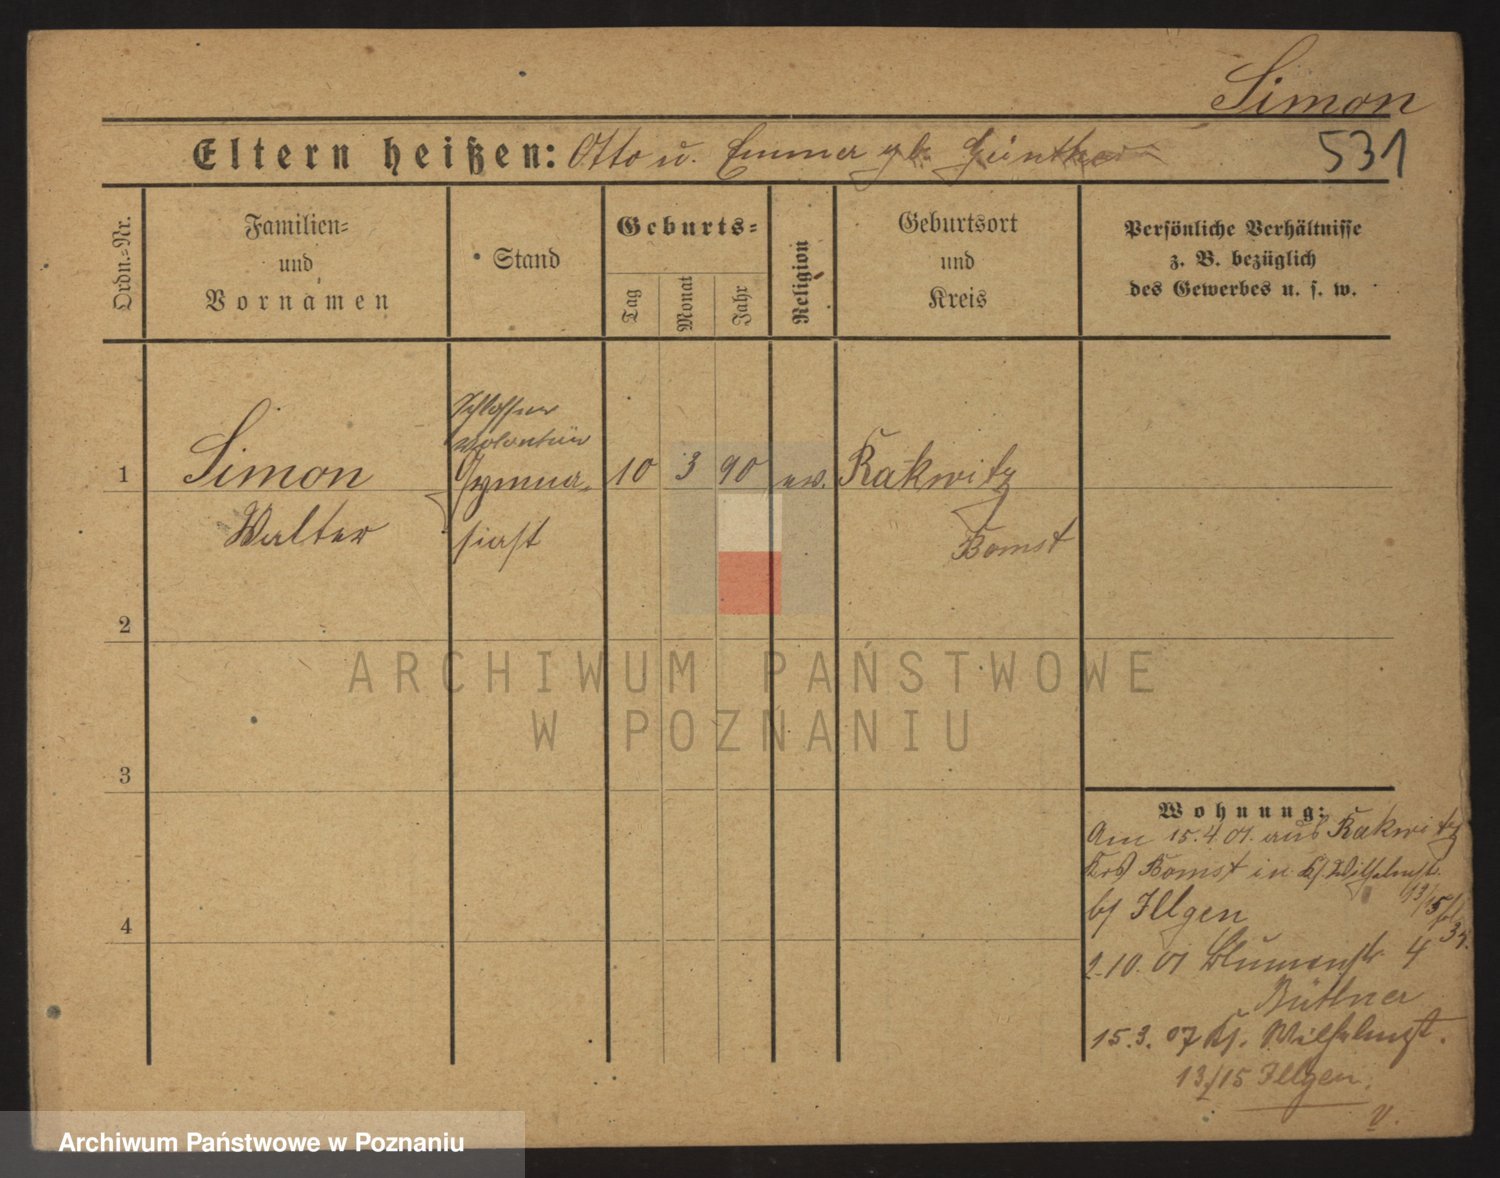 Simon
Eltern heißen: Otto u. Emma gb. Günther
531
Ordn.-Nr.
Familien-
und
Vornamen
Stand
Geburts-
Tag
Monat
Jahr
Religion
Geburtsort
und
Kreis
Persönliche Verhältnisse
z. B. bezüglich
des Gewerbes u. s. w.
Schlosser
volontär
1 Simon Gymna- 10 3 90 ev. Rakwitz
Walter siast Bomst
2
3
4
ARCHIWUM PAŃSTWOWE
W POZNANIU
Wohnung:
Am 15.4.01. aus Rakwitz
Krs Bomst in Kl. Wilhelmstr.
13/15
b/ Illgen
2.10.01 Blumenstr 4
Büttner
15.3.07 Kl. Wilhelmst.
13/15 Illgen.
v.
Archiwum Państwowe w Poznaniu